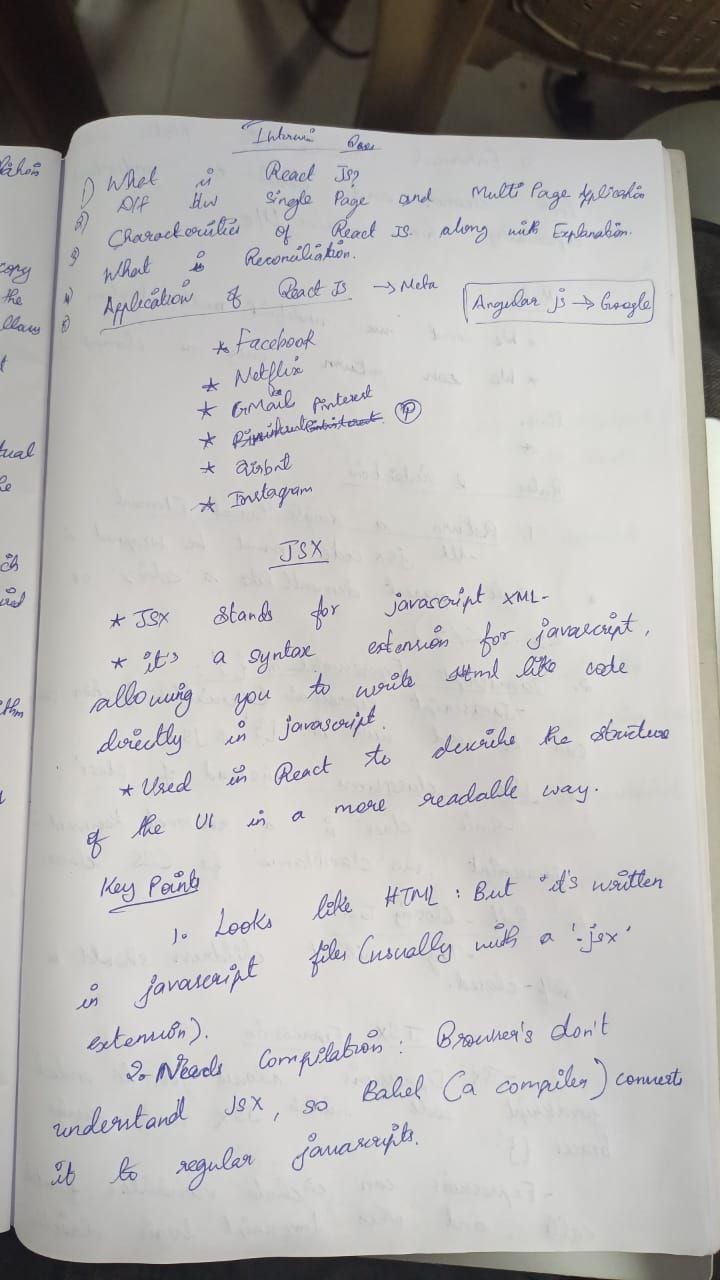 Interview Ques
1) What is React JS?
2) Diff btw Single Page and Multi Page Application
3) Characteristics of React JS along with Explanation.
4) What is Reconciliation.
5) Application of React JS → Meta
Angular js → Google
* Facebook
* Netflix
* GMail
* Pinterest P
* airbnb
* Instagram
JSX
* JSX stands for javascript XML-
* it's a syntax extension for javascript,
allowing you to write Html like code
directly in javascript.
* Used in React to describe the structure
of the UI in a more readable way.
Key Points
1. Looks like HTML : But it's written
in javascript files (usually with a '.jsx'
extension).
2. Needs Compilation : Browser's don't
understand JSX, so Babel (a compiler) converts
it to regular javascripts.